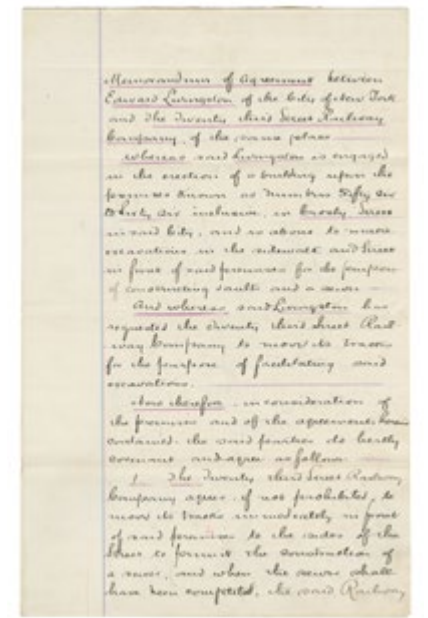 Memorandum of Agreement between
Edward Livingston of the City of New York
and The Twenty third Street Railway
Company, of the same place
Whereas said Livingston is engaged
in the erection of a building upon the
premises known as Numbers Fifty six
to Sixty six inclusive, in Street
in said City, and is about to make
excavations in the sidewalk and Street
in front of said premises for the purpose
of constructing vaults and a sewer
And whereas said Livingston has
requested the Twenty third Street Rail-
way Company to move its tracks
for the purpose of facilitating said
excavations.
Now therefore, in consideration of
the premises and of the agreements herein
contained, the said parties do hereby
covenant and agree as follows
1 The Twenty third Street Railway
Company agrees, if not prohibited, to
move its tracks immediately in front
of said premises to the sides of the
Street to permit the construction of
a sewer, and when the sewer shall
have been completed, the said Railway